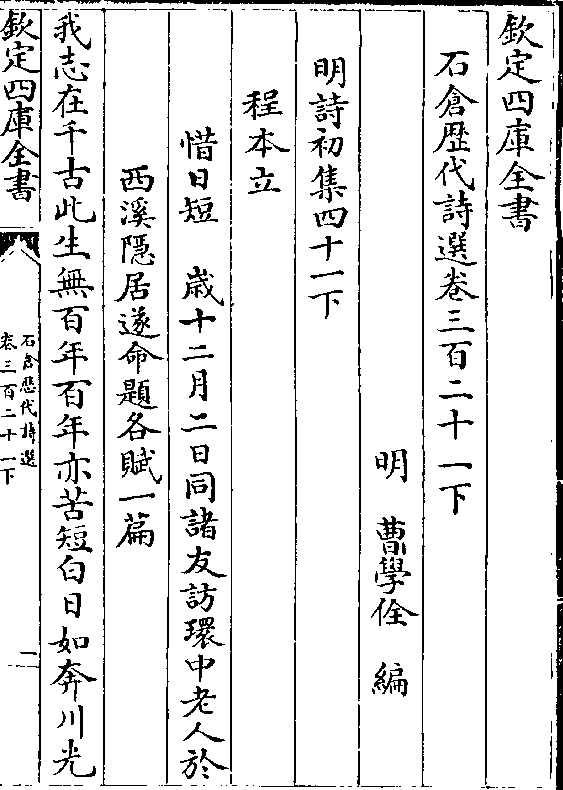 欽定四庫全書
石倉歷代詩選卷三百二十一下
明　曹學佺　編
明詩初集四十一下
程本立
惜日短　歲十二月二日同諸友訪環中老人於
西溪隠居遂命題各賦一篇
我志在千古此生無百年百年亦苦短白日如奔川光
欽定四庫全書
石倉歷代詩選
卷三百二十一下
一